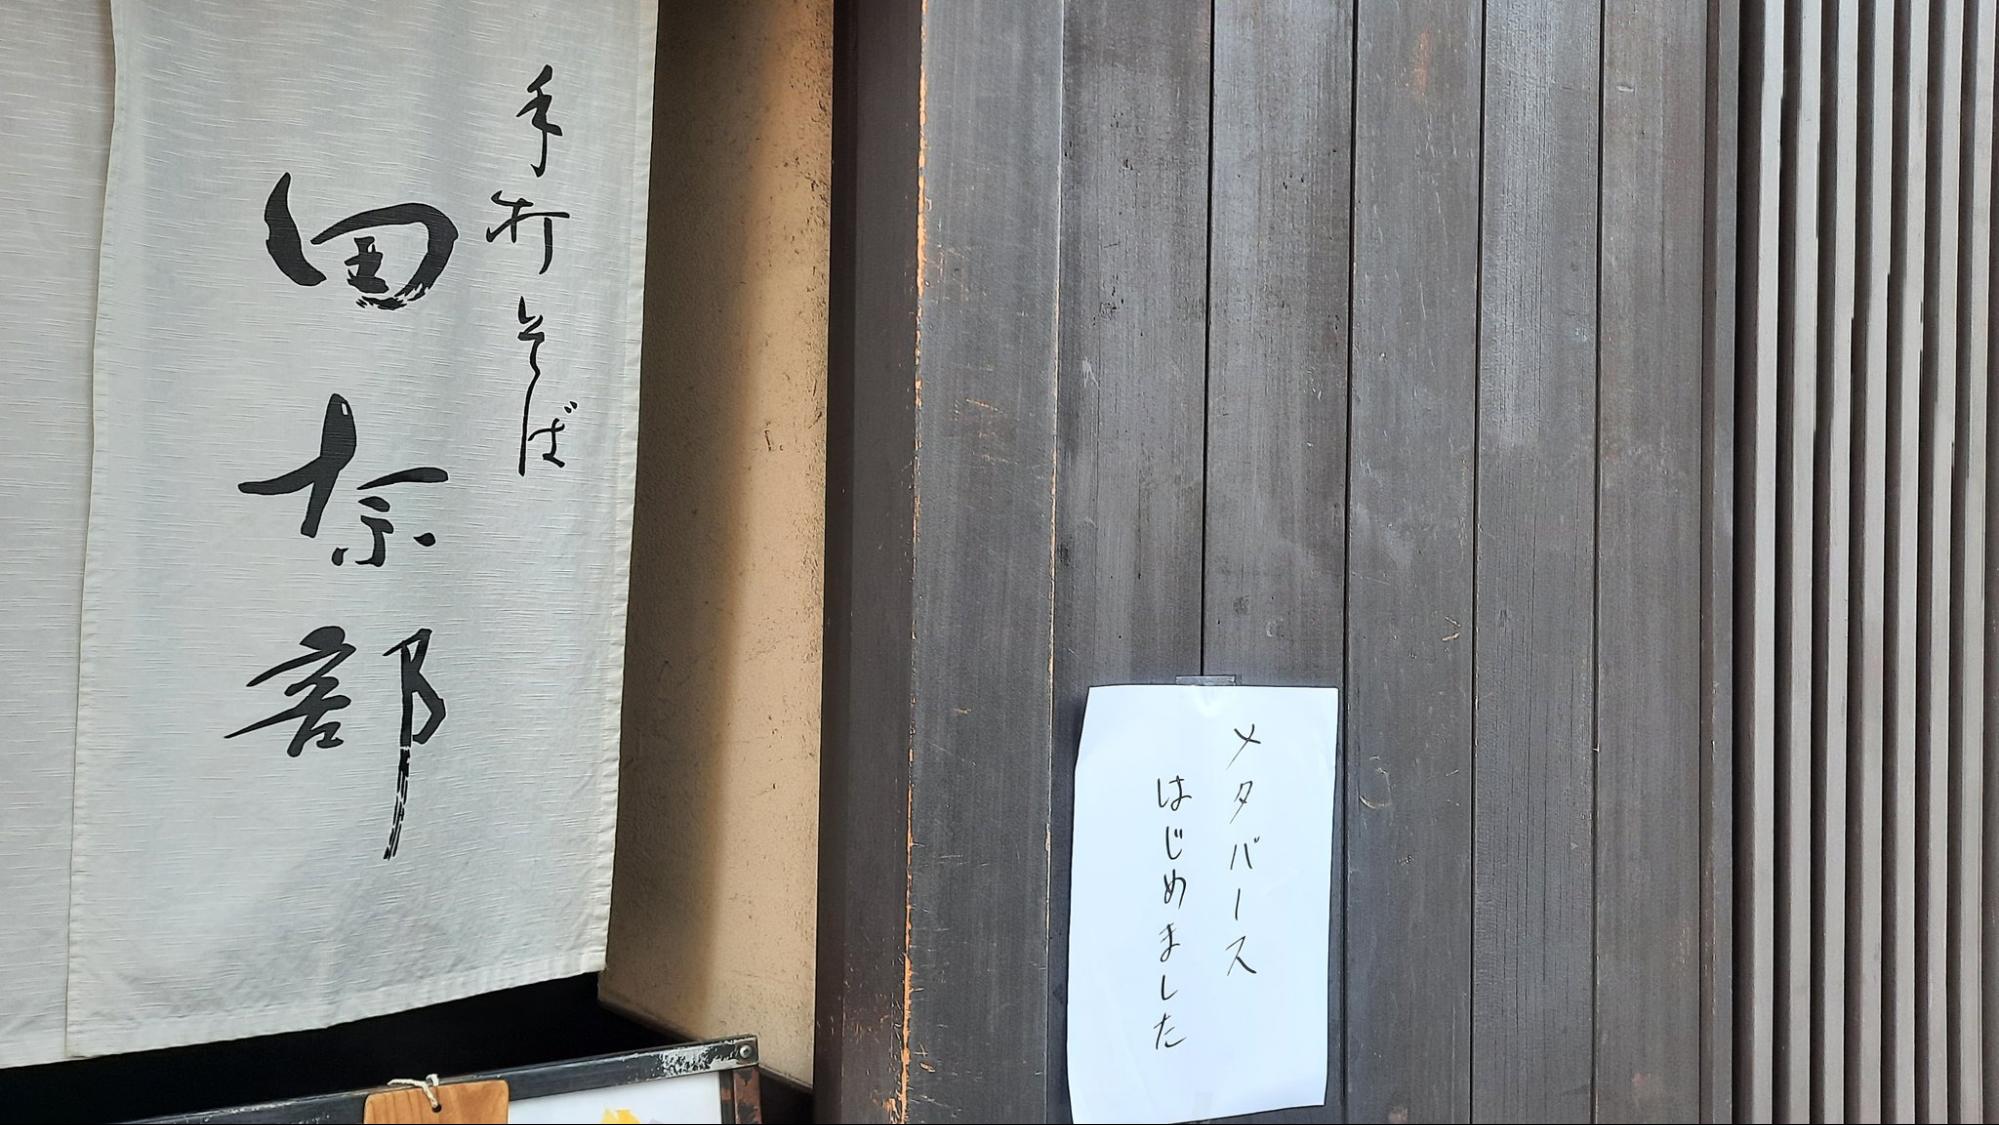 手打そば
田奈部
メタバース
はじめました